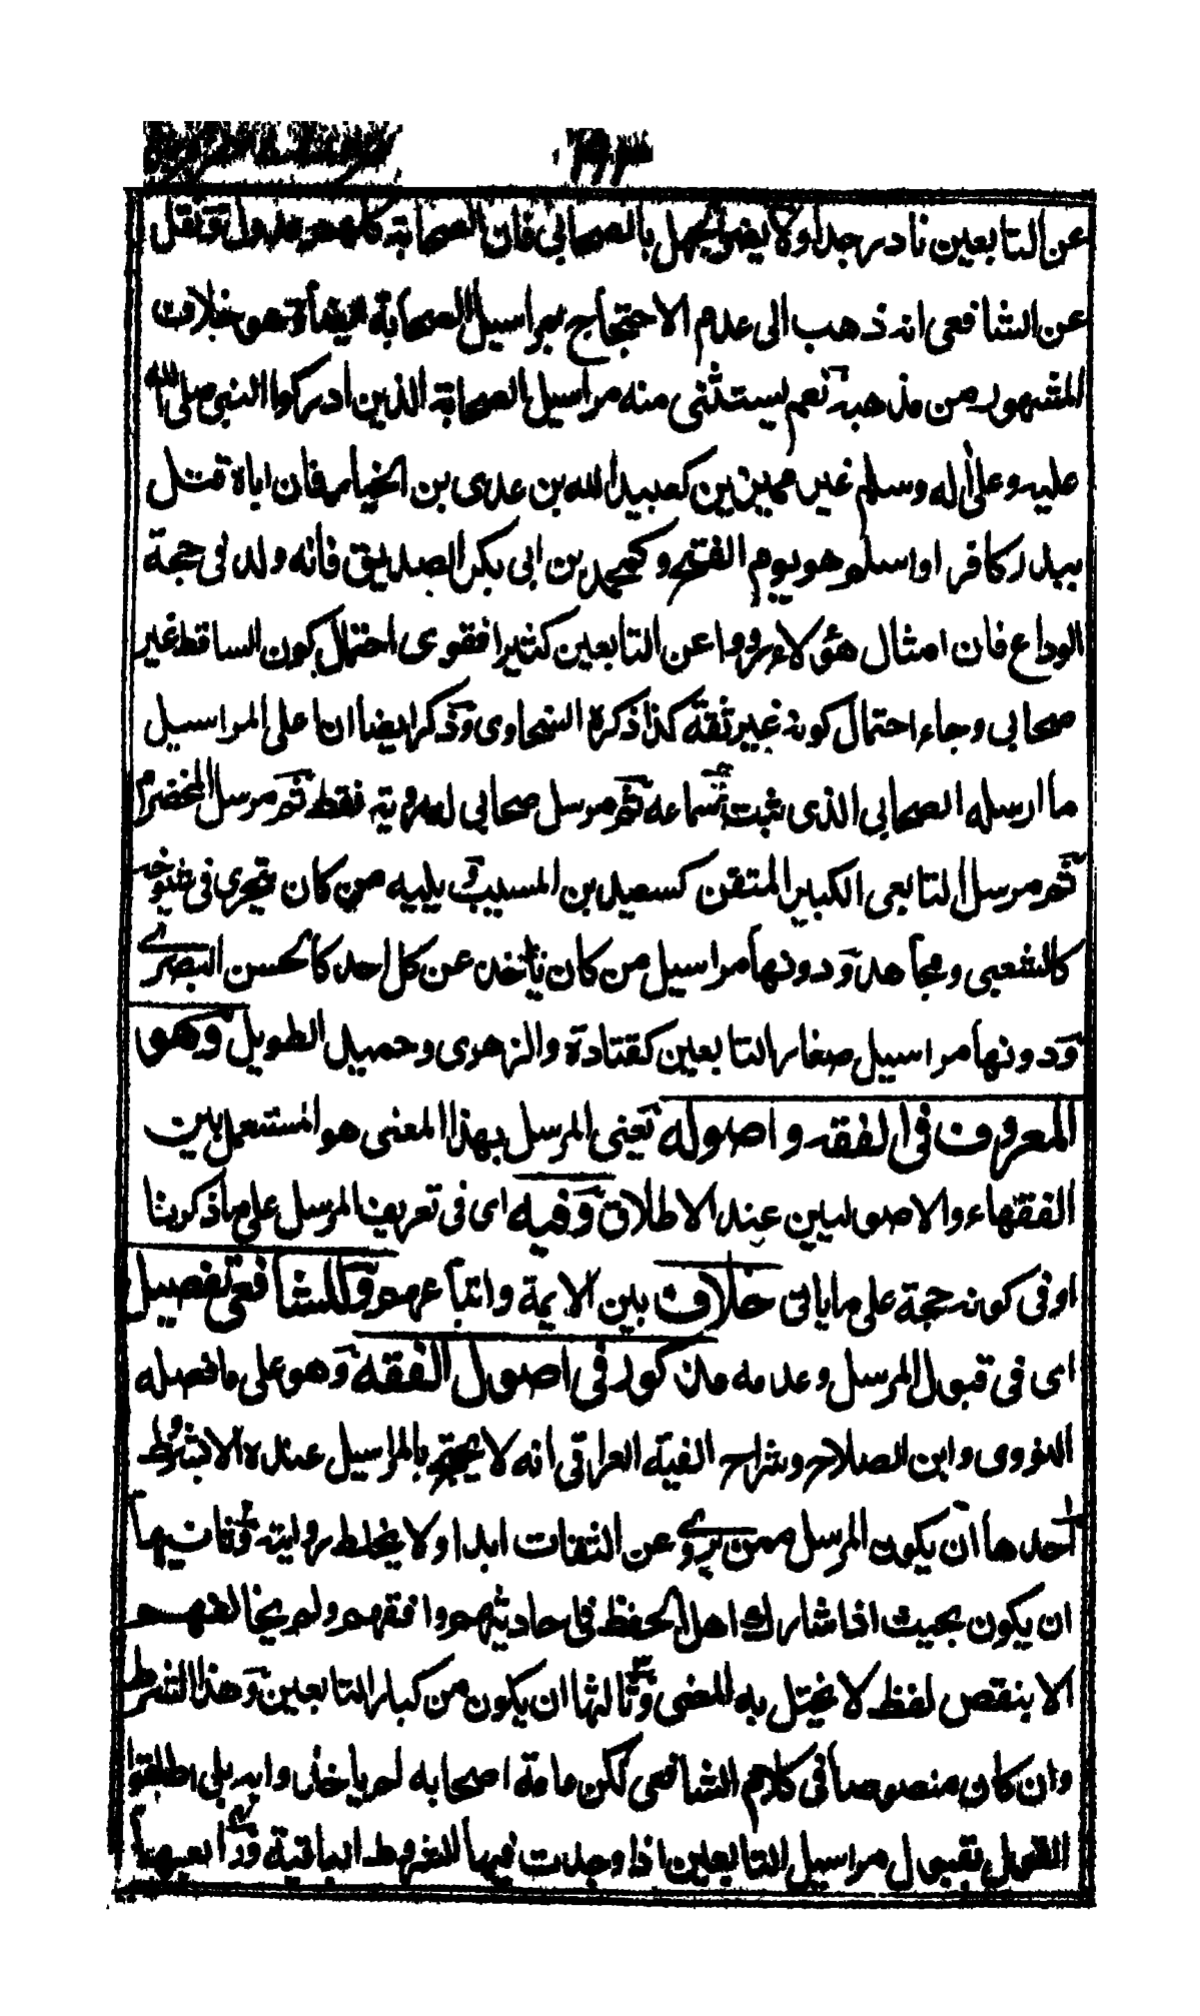 عن التابعين نادر جدا ولا يضر الجهل بالصحابي فان الصحابة كلهم عدول ونقل
عن الشافعي انه ذهب الى عدم الاحتجاج بمراسيل الصحابة ايضا وهو خلاف
المشهور من مذهبه نعم يستثنى منه مراسيل الصحابة الذين ادركوا النبي صلى الله
عليه وعلى اله وسلم غير مميزين كعبيد الله بن عدى بن الخيار فان اباه قتل
ببدر كافر او اسلم هو يوم الفتح وكمحمد بن ابي بكر الصديق فانه ولد في حجة
الوداع فان امثال هؤلاء رووا عن التابعين كثيرا فقوى احتمال كون الساقط غير
صحابي وجاء احتمال كونه غير ثقة كذا ذكره السخاوى وذكر ايضا ان اعلى المراسيل
ما ارسله الصحابي الذى ثبت سماعه ثم مرسل صحابي له روية فقط ثم مرسل المخضرم
ثم مرسل التابعى الكبير المتقن كسعيد بن المسيب ويليه من كان يتحرى في شيوخه
كالشعبى ومجاهد ودونها مراسيل من كان ياخذ عن كل احد كالحسن البصرى
ودونها مراسيل صغار التابعين كقتادة والزهرى وحميد الطويل وهو
المعروف في الفقه واصوله يعنى المرسل بهذا المعنى هو المستعمل بين
الفقهاء والاصوليين عند الاطلاق وفيه اى فى تعريف المرسل على ما ذكرنا
او فى كونه حجة على ما ياتى خلاف بين الايمة واتباعهم وللشافعى تفصيل
اى فى قبول المرسل وعدمه مذكور فى اصول الفقه وهو على ما فصله
النووى وابن الصلاح وشراح الفية العراقى انه لا يحتج بالمراسيل عنده الا بشروط
احدها ان يكون المرسل ممن يروى عن الثقات ابدا ولا يخلط روايته وثانيها
ان يكون بحيث اذا شارك اهل الحفظ فى احاديثهم وافقهم ولم يخالفهم
الا بنقص لفظ لا يختل به المعنى وثالثها ان يكون من كبار التابعين وهذا الشرط
وان كان منصوصا فى كلام الشافعى لكن عامة اصحابه لم ياخذوا به بل اطلقوا
القول بقبول مراسيل التابعين اذا وجدت فيها الشروط الباقية ورابعها